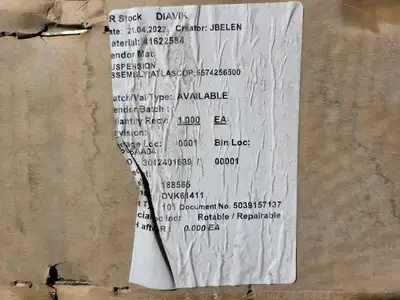 R Stock DIAVIK
ate: 21.04.2022 Creator: JBELEN
aterial: 41622584
endor Mat
USPENSION
SSEMBLY;ATLASCOP;5574256500
atch/Val Type: AVAILABLE
ender Batch :
uantity Recv: 1.000 EA
evision:
orage Loc: 0001 Bin Loc:
AA04
3012401639 / 00001
188565
DVK61411
101 Document No. 5039157137
Ind: Rotable / Repairable
after R : 0.000 EA